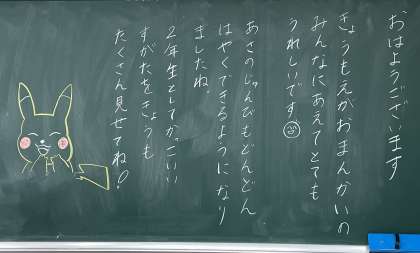 おはようございます
きょうもえがおまんかいの
みんなにあえてとても
うれしいです
あさのじゅんびもどんどん
はやくできるようになり
ましたね
2年生としてかっこいい
すがたをきょうも
たくさん見せてね!